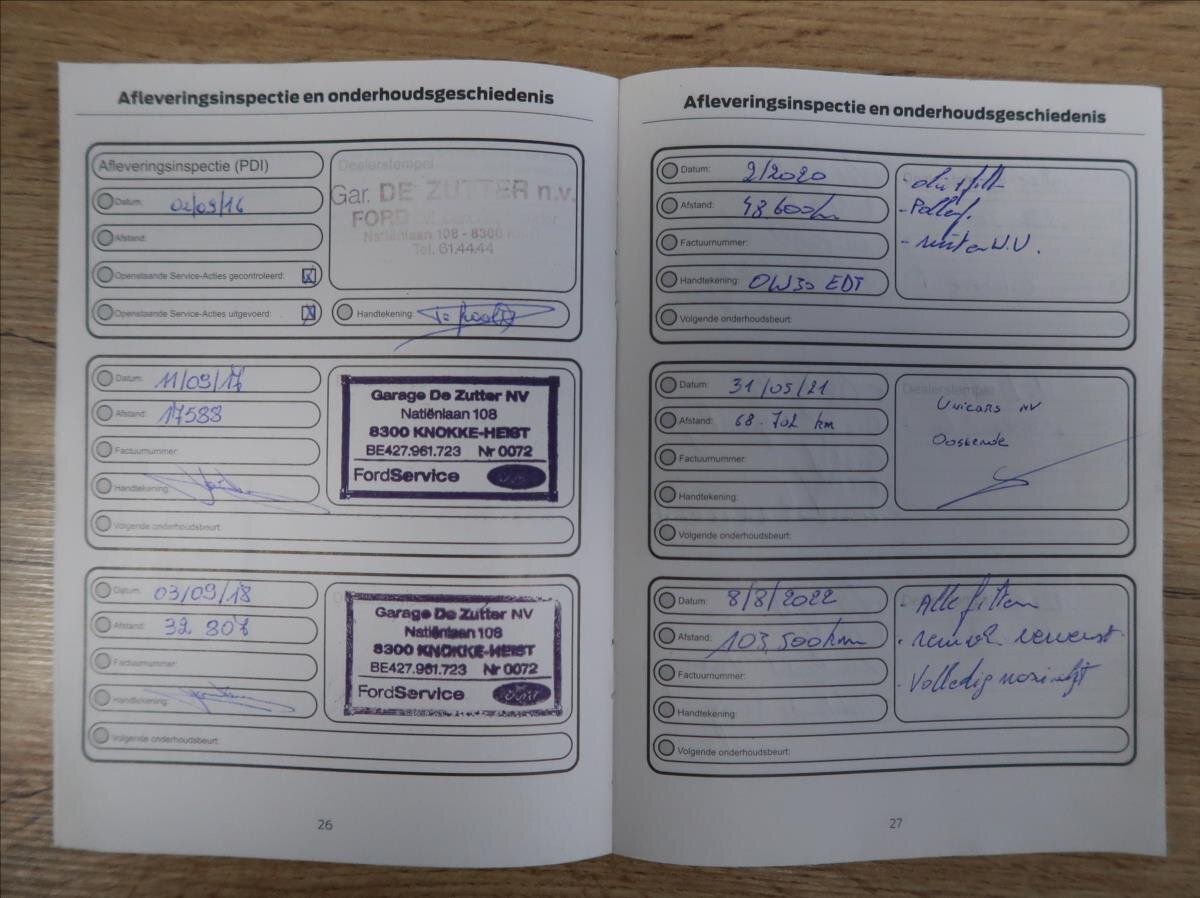 Afleveringsinspectie en onderhoudsgeschiedenis
Afleveringsinspectie (PDI)
Datum: 02/09/16
Afstand:
Openstaande Service-Acties gecontroleerd: X
Openstaande Service-Acties uitgevoerd: X
Dealerstempel
Gar. DE ZUTTER n.v.
FORD
Natiënlaan 108 - 8300
Tel. 61.44.44
Handtekening:
Datum: 11/09/17
Afstand: 17588
Factuurnummer:
Handtekening:
Volgende onderhoudsbeurt:
Garage De Zutter NV
Natiënlaan 108
8300 KNOKKE-HEIST
BE427.961.723 Nr 0072
FordService
Datum: 03/09/18
Afstand: 32 807
Factuurnummer:
Handtekening:
Volgende onderhoudsbeurt:
Garage De Zutter NV
Natiënlaan 108
8300 KNOKKE-HEIST
BE427.961.723 Nr 0072
FordService
26
Afleveringsinspectie en onderhoudsgeschiedenis
Datum: 2/2020
Afstand: 48 600km
Factuurnummer:
Handtekening: OW30 EDT
Volgende onderhoudsbeurt:
- Pollef.
Datum: 31/05/21
Afstand: 68.702 km
Factuurnummer:
Handtekening:
Volgende onderhoudsbeurt:
Dealerstempel
Unicars NV
Oostende
Datum: 8/8/2022
Afstand: 103,500km
Factuurnummer:
Handtekening:
Volgende onderhoudsbeurt:
- Alle filters
- Volledig
27